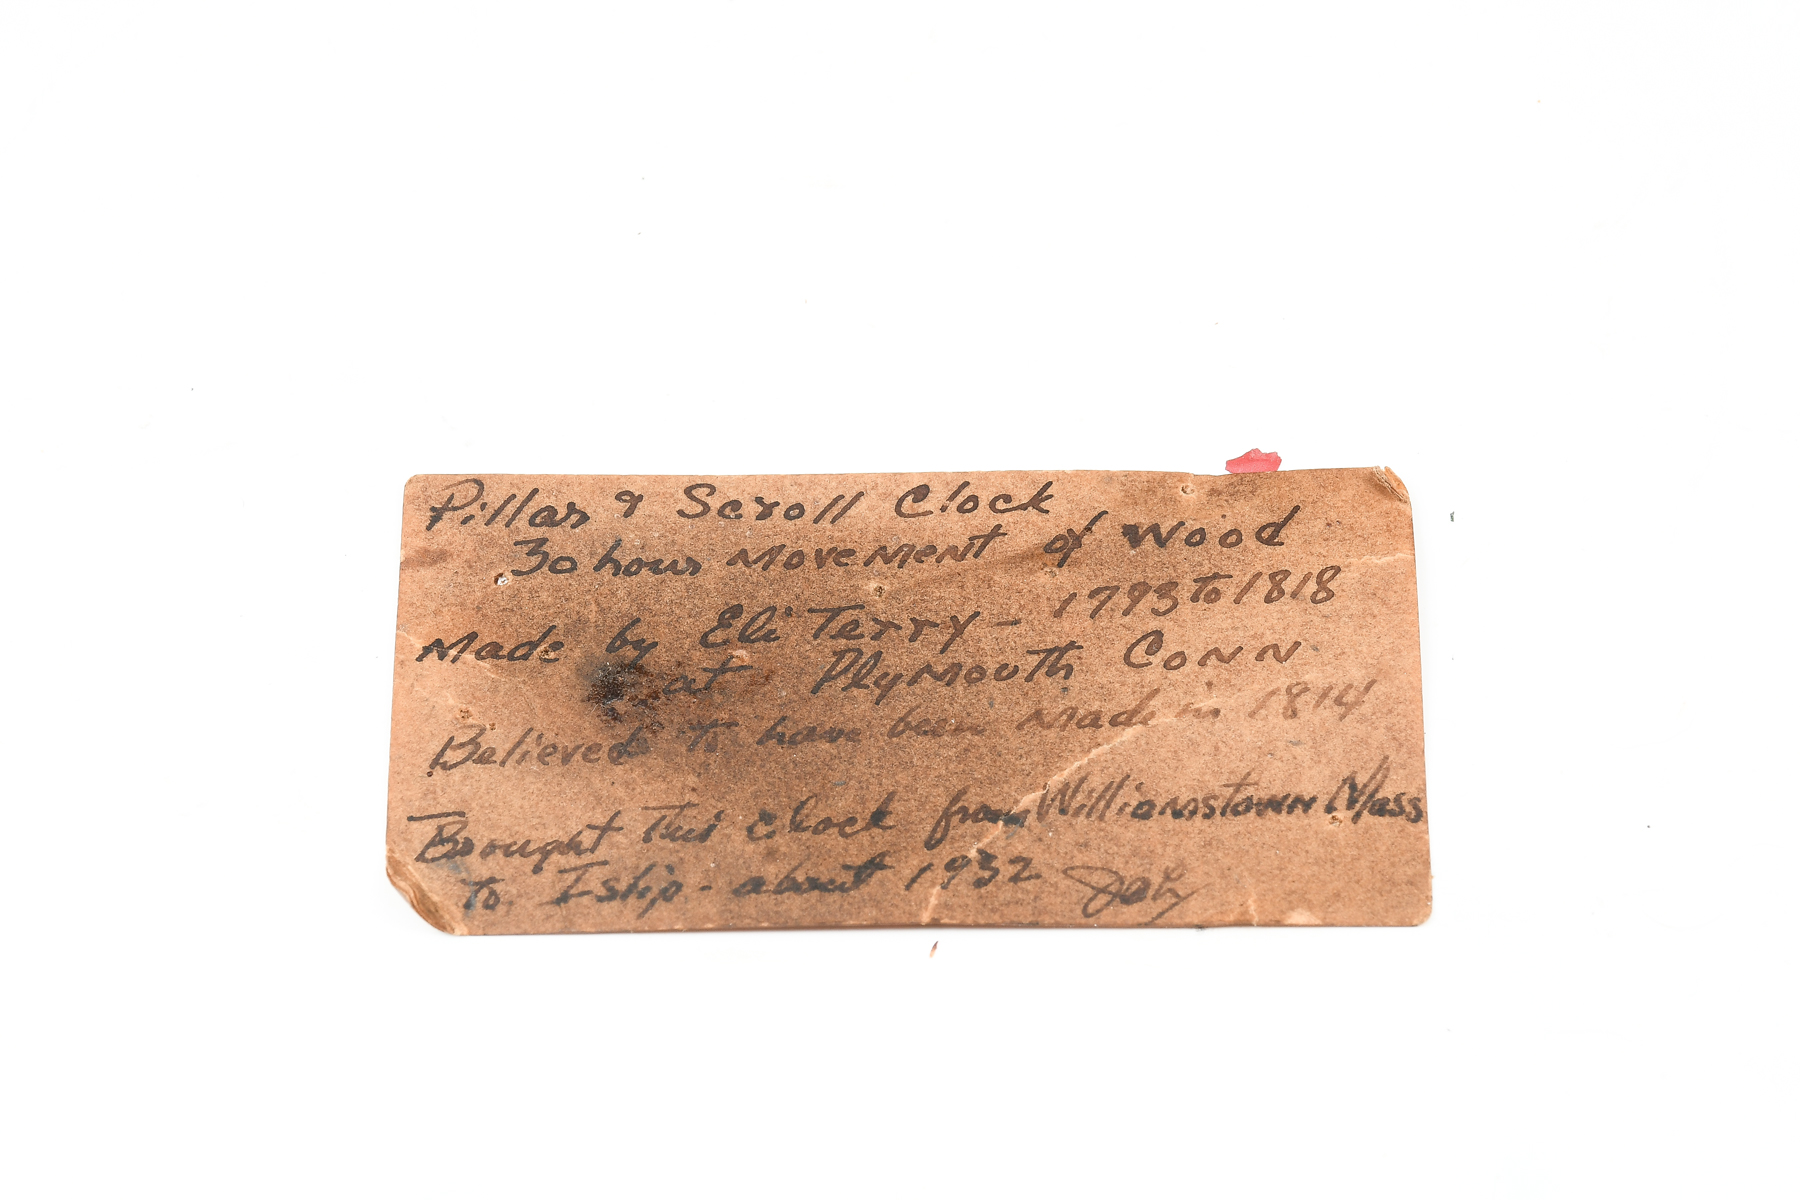 Pillar & Scroll Clock
30 hour movement of wood
Made by Eli Terry - 1793 to 1818
at Plymouth Conn
Believed to have been made in 1814
Brought this clock from Williamstown Mass
to Islip - about 1932